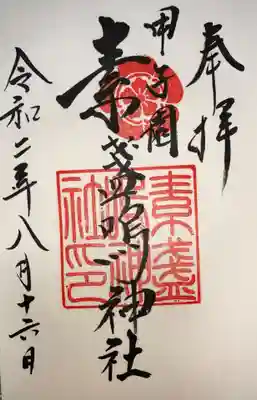 奉拝
甲子園
素盞嗚神社
素盞
嗚神
社印
令和二年八月十六日